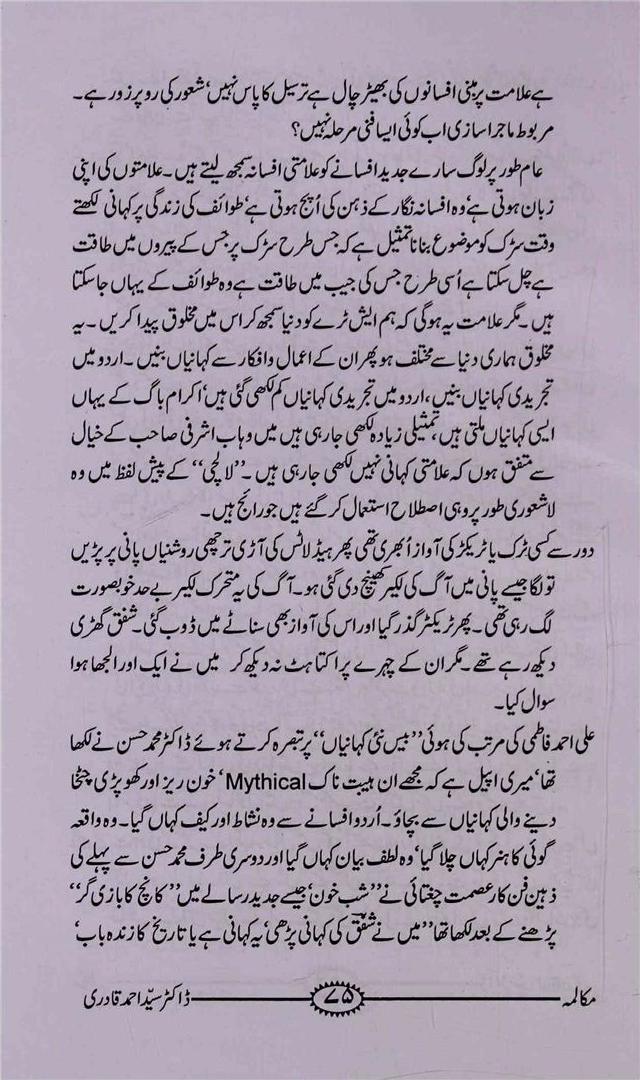 ہے علامت پر مبنی افسانوں کی بھیڑ چال ہے ترسیل کا پاس نہیں، شعور کی رو پر زور ہے۔
مربوط ماجرا سازی اب کوئی ایسا فنی مرحلہ نہیں؟
عام طور پر لوگ سارے جدید افسانے کو علامتی افسانہ سمجھ لیتے ہیں۔ علامتوں کی اپنی
زبان ہوتی ہے، وہ افسانہ نگار کے ذہن کی اُپج ہوتی ہے، طوائف کی زندگی پر کہانی لکھتے
وقت سڑک کو موضوع بنانا تمثیل ہے کہ جس طرح سڑک پر جس کے پیروں میں طاقت
ہے چل سکتا ہے اُسی طرح جس کی جیب میں طاقت ہے وہ طوائف کے یہاں جا سکتا
ہیں۔ مگر علامت یہ ہوگی کہ ہم ایش ٹرے کو دنیا سمجھ کر اس میں مخلوق پیدا کریں۔ یہ
مخلوق ہماری دنیا سے مختلف ہو پھر ان کے اعمال و افکار سے کہانیاں بنیں۔ اردو میں
تجریدی کہانیاں بنیں، اردو میں تجریدی کہانیاں کم لکھی گئی ہیں، اکرام باگ کے یہاں
ایسی کہانیاں ملتی ہیں، تمثیلی زیادہ لکھی جا رہی ہیں میں وہاب اشرفی صاحب کے خیال
سے متفق ہوں کہ علامتی کہانی نہیں لکھی جا رہی ہیں۔ ”لالچی“ کے پیش لفظ میں وہ
لاشعوری طور پر وہی اصطلاح استعمال کر گئے ہیں جو رائج ہیں۔
دور سے کسی ٹرک یا ٹریکڑ کی آواز اُبھری تھی پھر ہیڈ لائٹس کی آڑی ترچھی روشنیاں پانی پر پڑیں
تو لگا جیسے پانی میں آگ کی لکیر کھینچ دی گئی ہو۔ آگ کی یہ متحرک لکیر بے حد خوبصورت
لگ رہی تھی۔ پھر ٹریکٹر گذر گیا اور اس کی آواز بھی سناٹے میں ڈوب گئی۔ شفق گھڑی
دیکھ رہے تھے۔ مگر ان کے چہرے پر اکتاہٹ نہ دیکھ کر میں نے ایک اور الجھا ہوا
سوال کیا۔
علی احمد فاطمی کی مرتب کی ہوئی ”بیس نئی کہانیاں“ پر تبصرہ کرتے ہوئے ڈاکٹر محمد حسن نے لکھا
تھا، میری اپیل ہے کہ مجھے ان ہیبت ناک Mythical، خون ریز اور کھوپڑی چٹخا
دینے والی کہانیاں سے بچاؤ۔ اُردو افسانے سے وہ نشاط اور کیف کہاں گیا۔ وہ واقعہ
گوئی کا ہنر کہاں چلا گیا، وہ لطف بیان کہاں گیا اور دوسری طرف محمد حسن سے پہلے کی
ذہین فن کار عصمت چغتائی نے ”شب خون، جیسے جدید رسالے میں ”کانچ کا بازی گر“
پڑھنے کے بعد لکھا تھا ”میں نے شفق کی کہانی پڑھی، یہ کہانی ہے یا تاریخ کا زندہ باب،
مکالمہ ۷۵ ڈاکٹر سیّد احمد قادری